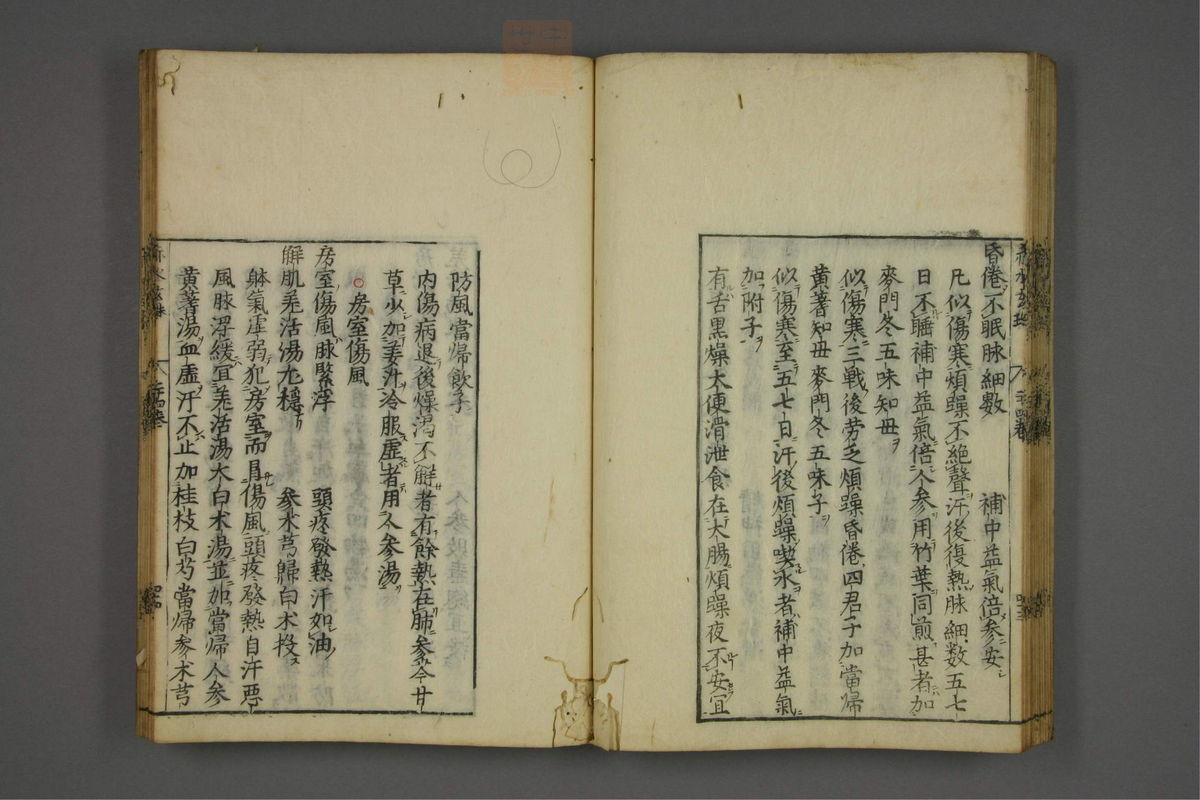 昏倦不眠脉細數 補中益氣倍參安
凡似傷寒煩躁不絶聲汗後復熱脉細数五七
日不睡補中益氣倍人參用竹葉同煎甚者加
麥門冬五味知毋
似傷寒三戰後勞乏煩躁昏倦四君子加當歸
黄蓍知毋麥門冬五味子
似傷寒至五七日汗後煩躁喫水者補中益氣
加附子
有舌黒燥大便滑泄食在大腸煩躁夜不安宜
防風當歸飲子
内傷病退後燥渇不解者有餘熱在肺參苓甘
草少加姜汁冷服虚者用人參湯
房室傷風
房室傷風脉緊浮 頭疼發熱汗如油
解肌羌活湯尤穏 參朮芎歸白朮投
躰氣虚弱犯房室而傷風頭疼發熱自汗悪
風脉浮緩宜羌活湯大白朮湯並加當歸人參
黄蓍湯血虚汗不止加桂枝白芍當歸參朮芎